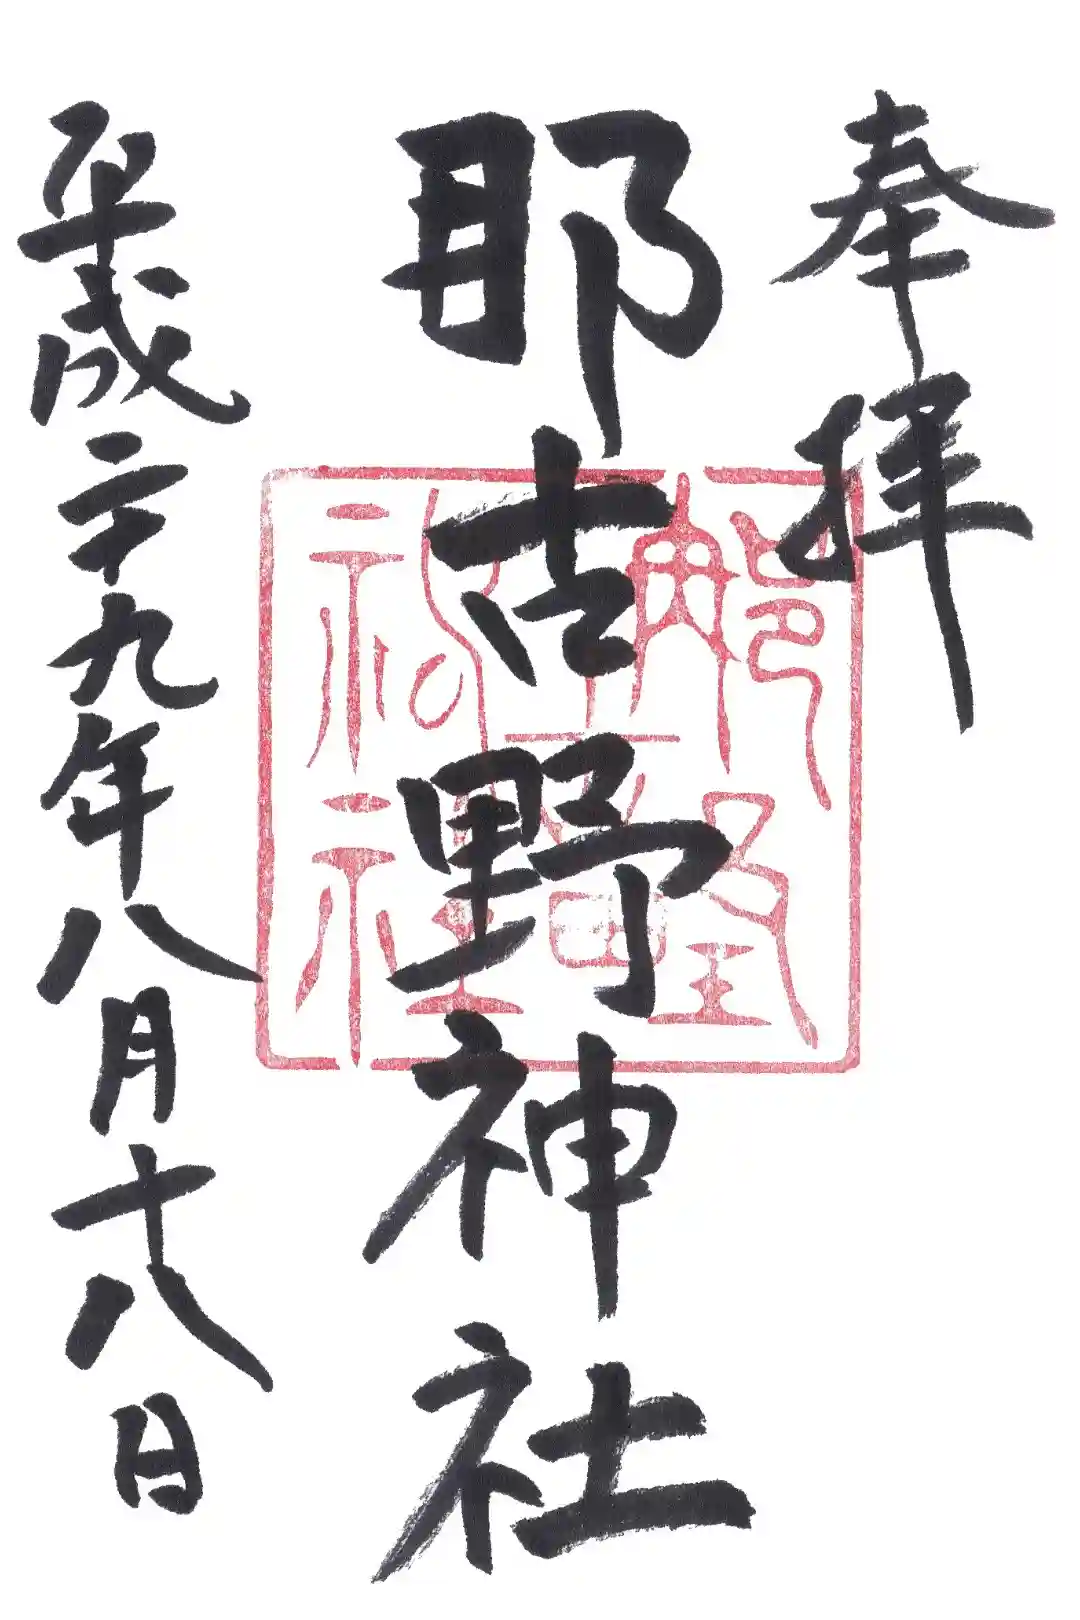 奉拝
那古野神社
平成二十九年八月十八日
那古野神社